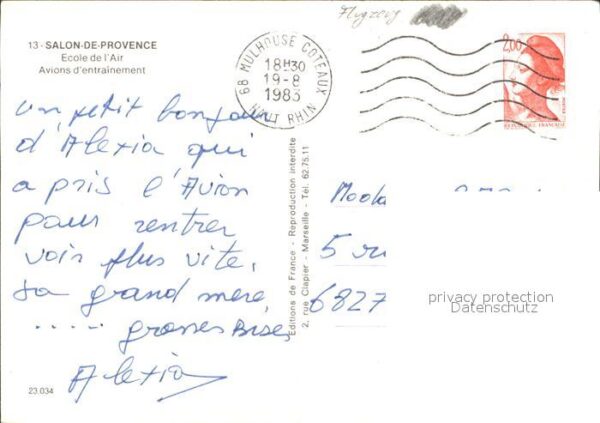 Flugzeug
13 - SALON-DE-PROVENCE
Ecole de l'Air
Avions d'entraînement
68 MULHOUSE COTEAUX
18H30
19-8
1983
HAUT RHIN
2,00
REPUBLIQUE FRANCAISE
un petit bonjour
d'Alexia qui
a pris l'Avion
pour rentrer
voir plus vite,
sa grand mère,
..... grosses Bises
Alexia
23.034
Editions de France - Reproduction interdite
2, rue Clapier - Marseille - Tél. 62.75.11
5 ru
6827
privacy protection
Datenschutz